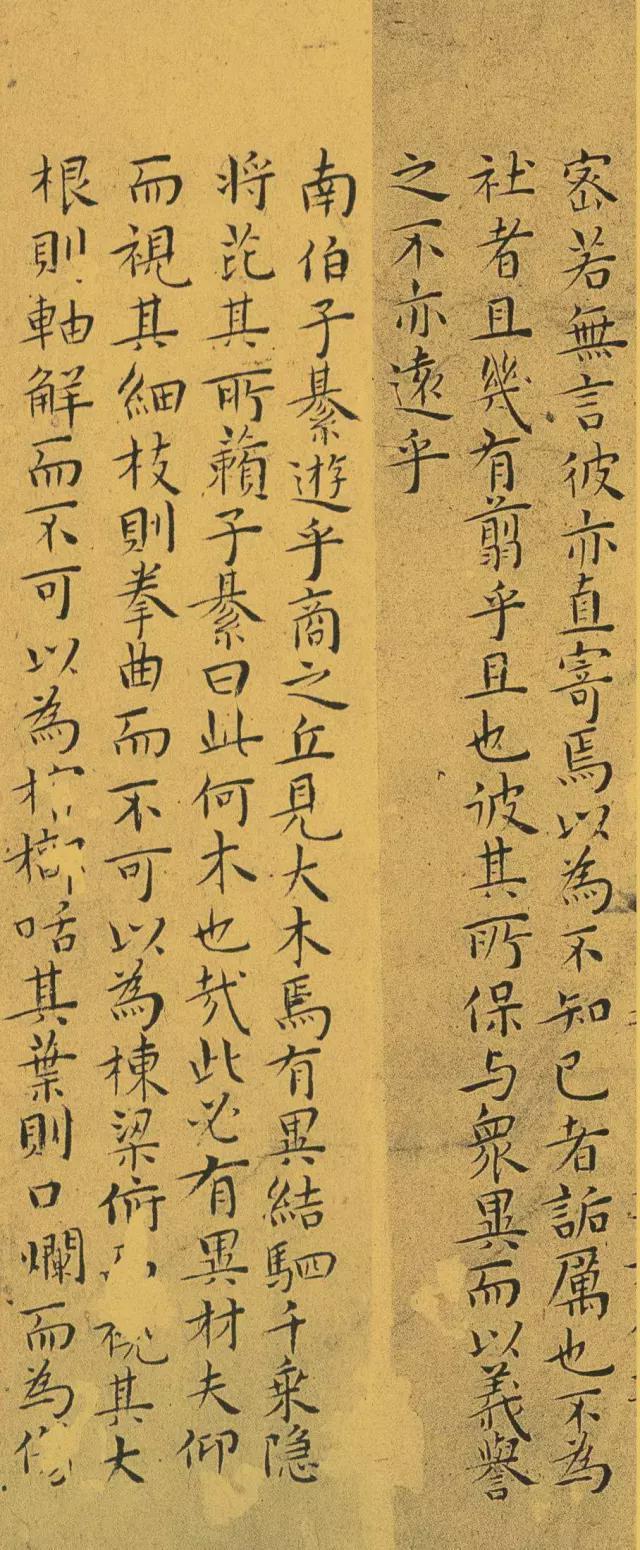 密若無言彼亦直寄焉以為不知已者詬厲也不為
社者且幾有翦乎且也彼其所保与眾異而以義譽
之不亦遠乎
南伯子綦遊乎商之丘見大木焉有異結駟千乘隐
将芘其所藾子綦曰此何木也哉此必有異材夫仰
而視其細枝則拳曲而不可以為棟梁俯視其大
根則軸解而不可以為槨咶其葉則口爛而為